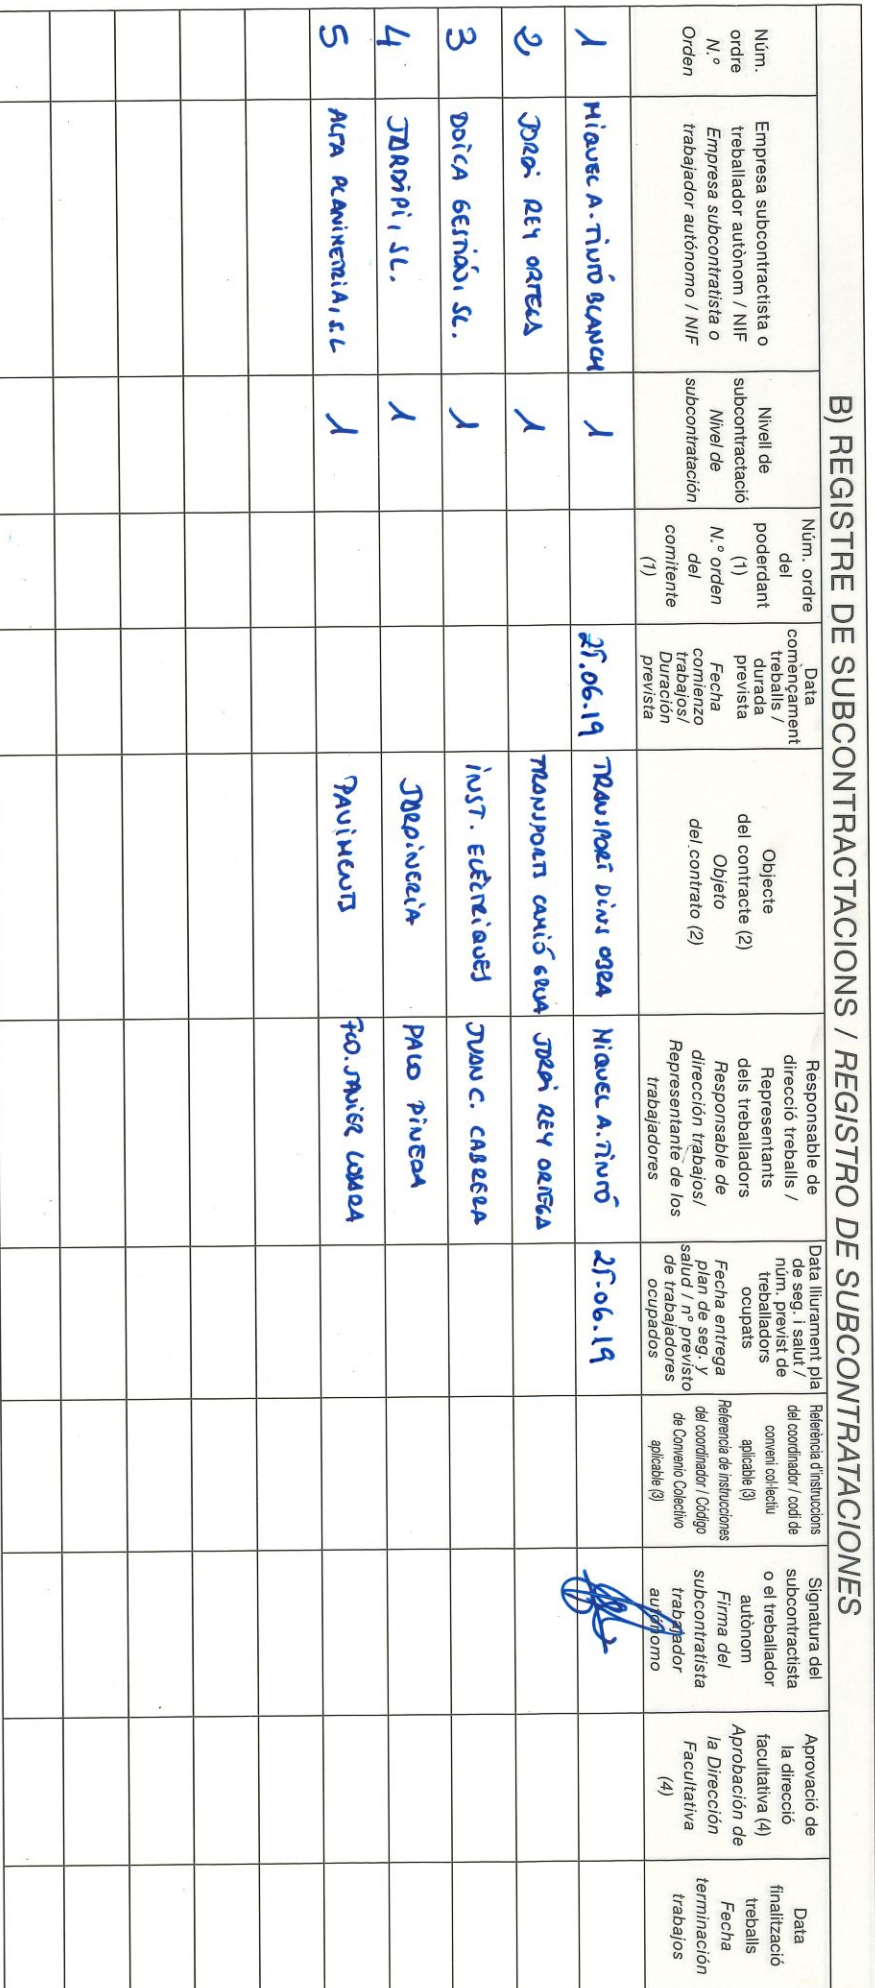 B) REGISTRE DE SUBCONTRACTACIONS / REGISTRO DE SUBCONTRATACIONES
Núm.
ordre
N.º
Orden
Empresa subcontractista o
treballador autònom / NIF
Empresa subcontratista o
trabajador autónomo / NIF
Nivell de
subcontractació
Nivel de
subcontratación
Núm. ordre
del
poderdant
(1)
N.º orden
del
comitente
(1)
Data
començament
treballs /
durada
prevista
Fecha
comienzo
trabajos/
Duración
prevista
Objecte
del contracte (2)
Objeto
del contrato (2)
Responsable de
direcció treballs /
Representants
dels treballadors
Responsable de
dirección trabajos/
Representante de los
trabajadores
Data lliurament pla
de seg. i salut /
núm. previst de
treballadors
ocupats
Fecha entrega
plan de seg. y
salud / nº previsto
de trabajadores
ocupados
Referència d'instruccions
del coordinador / codi de
conveni col·lectiu
aplicable (3)
Referencia de instrucciones
del coordinador / Código
de Convenio Colectivo
aplicable (3)
Signatura del
subcontractista
o el treballador
autònom
Firma del
subcontratista
trabajador
autónomo
Aprovació de
la direcció
facultativa (4)
Aprobación de
la Dirección
Facultativa
(4)
Data
finalització
treballs
Fecha
terminación
trabajos
1 MIQUEL A. TINTÓ BLANCH 1 25.06.19 TRANSPORT DINS OBRA MIQUEL A. TINTÓ 25.06.19
2 JORDI REY ORTEGA 1 TRANSPORTS CAMIÓ GRUA JORDI REY ORTEGA
3 DOICA GESTIÓN, SL. 1 INST. ELÈCTRIQUES JUAN C. CABRERA
4 JARDIPI, SL. 1 JARDINERIA PACO PINEDA
5 ALFA PLANIMETRIA, S.L 1 PAVIMENTS FCO. JAVIER